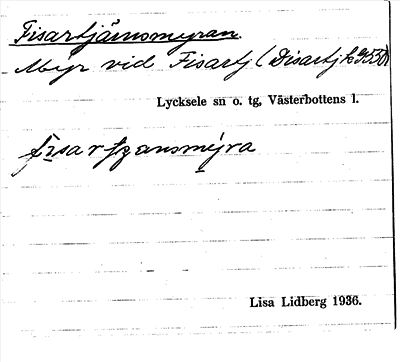 Fisartjärnsmyran.
Myr vid Fisartj (Disartj k. 9530)
Lycksele sn o. tg, Västerbottens l.
fisartjärnsmyra
Lisa Lidberg 1936.